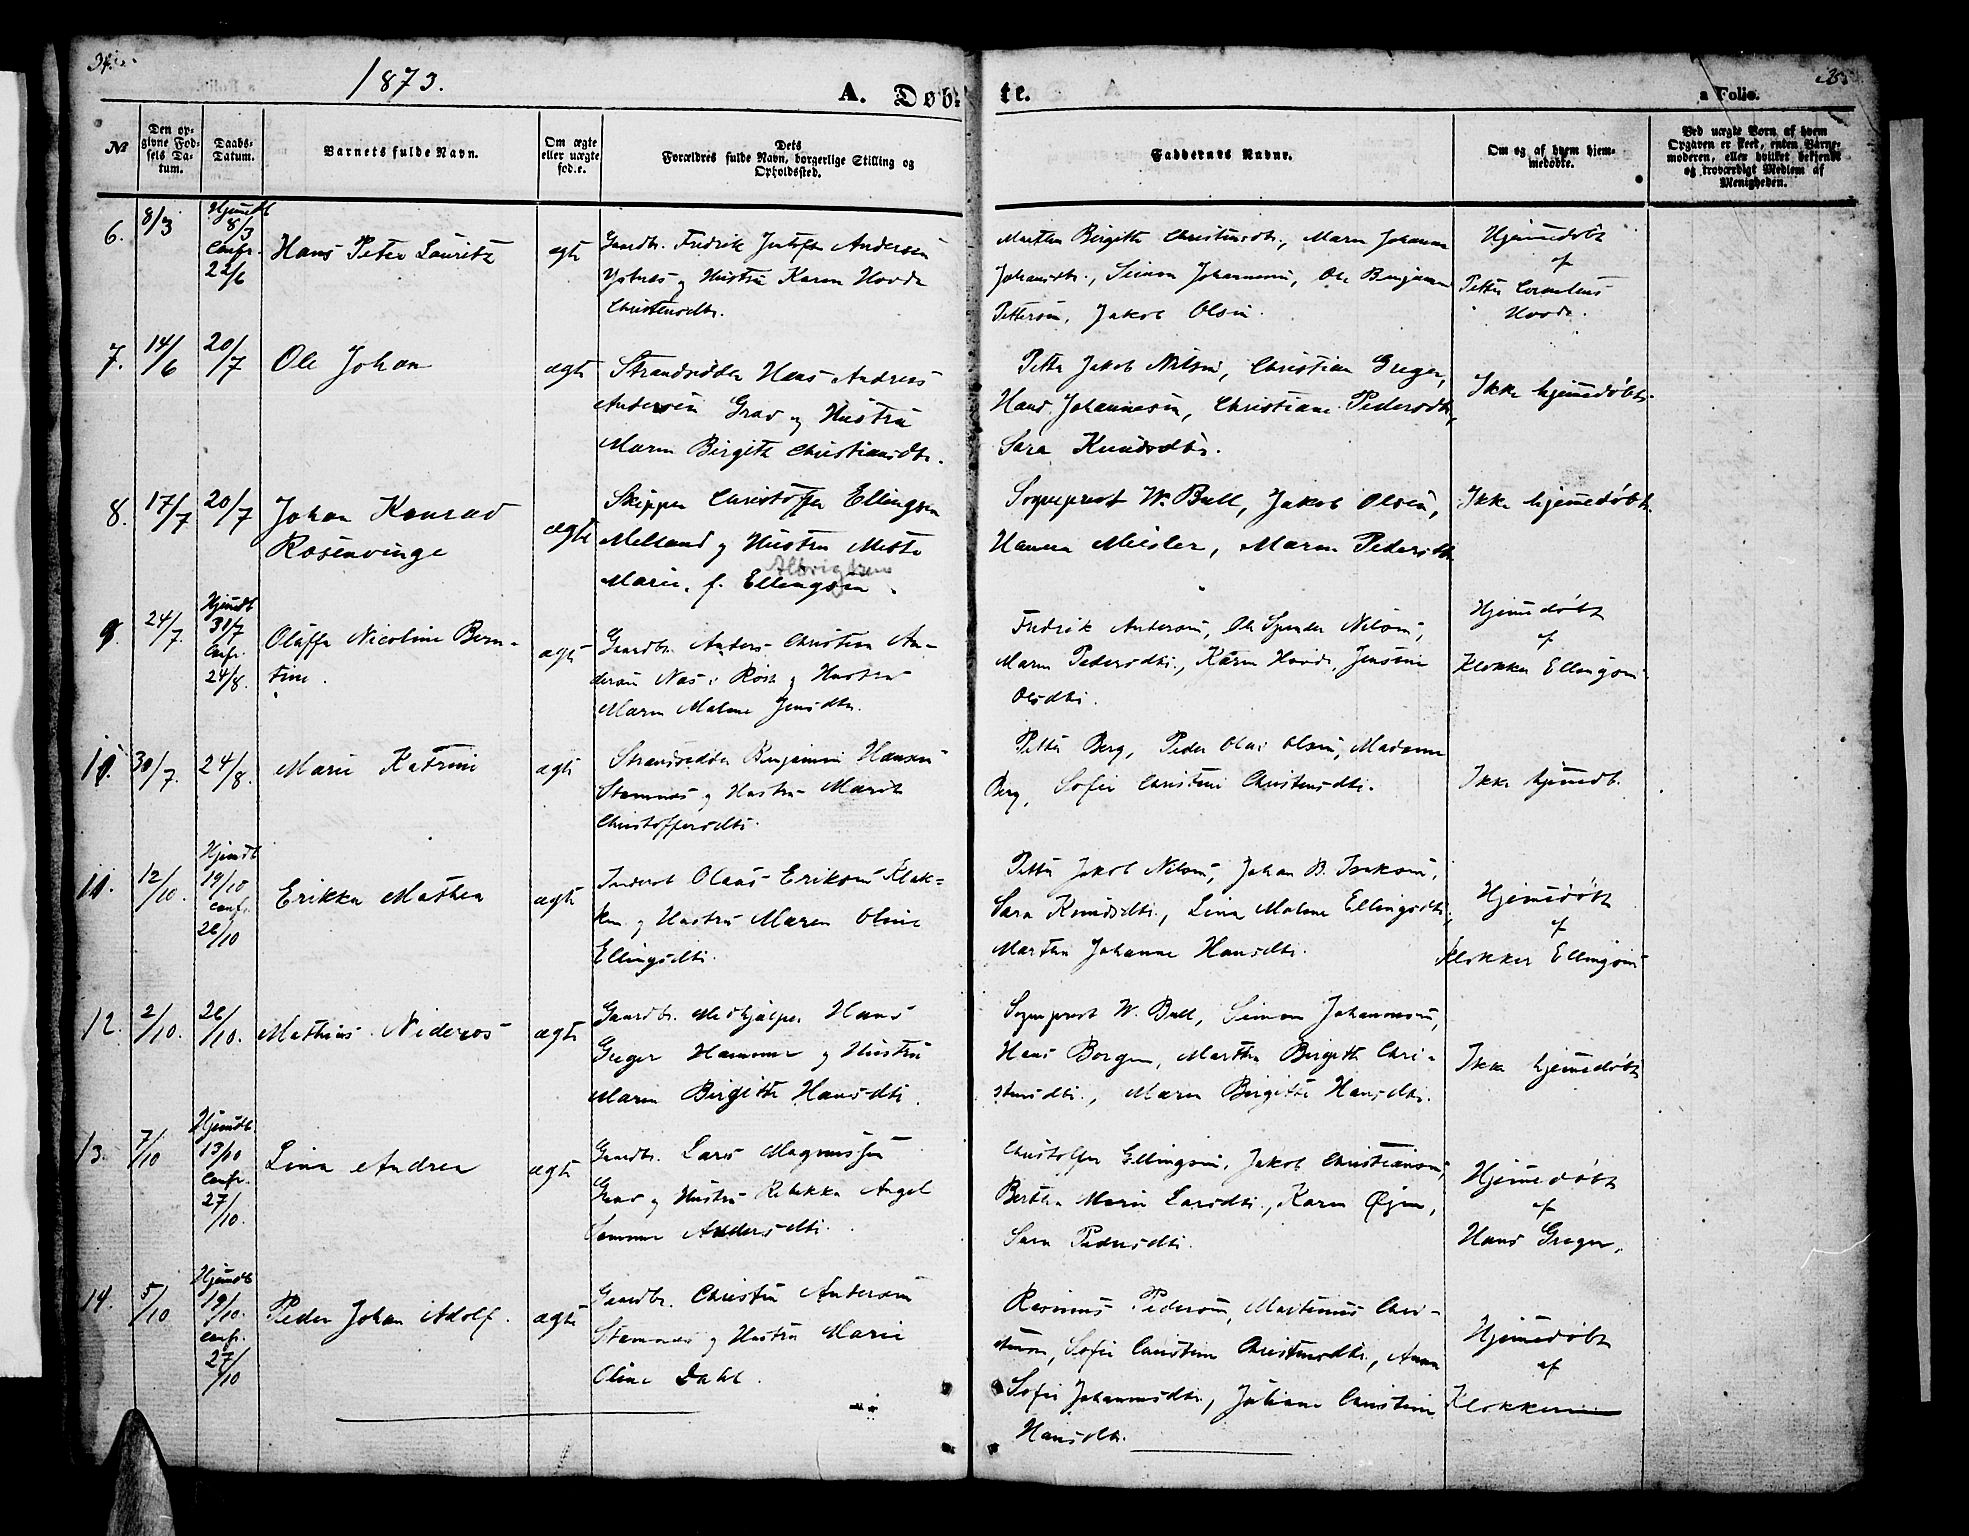 1873.
A. Døb-
te.
a Folio.
№
Den op-
givne Fød-
sels Da-
tum.
Daabs-
Datum.
Barnets fulde Navn.
Om ægte
eller uægte
fød.e.
Dets
Forældres fulde Navn, borgerlige Stilling og
Opholdssted.
Faddernes Navne.
Om og af hvem hjem-
medøbte.
Ved uægte Børn af hvem
Opgaven er skeet, enten Barne-
moderen, eller hvilket bekjendt
og troværdigt Medlem af
Menigheden.
6.
8/3
Hjemdb
8/3
Confr.
22/6
Hans Peter Lauritz
ægte
Gaardbr. Fredrik Andersen
og Hustru Karen Hovde
Christensdtr.
Martha Birgitte Christensdtr., Maren Johanna
Johansdtr., Simon Johannesen, Ole Benjamin
Pettersen, Jakob Olsen.
Hjemmedøbt
af
Petter Cornelius
Hovde.
7.
14/6
20/7
Ole Johan
ægte
Strandsidder Hans Andreas
Andersen Grav og Hustru
Maren Birgith Christiansdtr.
Petter Jakob Nilsen, Christian Greger,
Hans Johannesen, Christiane Pedersdtr,
Sara Knudsdtr.
Ikke hjemmedøbt.
8.
17/7
20/7
Johan Konrad
Rosenvinge
ægte
Skipper Christoffer Ellingsen
Melland og Hustru Mette
Albrigtsen
Marie f. Ellingsen.
Sogneprest W. Bull, Jakob Olsen,
Hanna Meisler, Maren Pedersdtr
Ikke hjemmedøbt.
9.
24/7.
Hjemdb
31/7
Confr.
24/8.
Oluffa Nicoline Bern-
tine.
ægte
Gaardbr. Anders Christian An-
dersen Næs i Røst og Hustru
Maren Malene Jensdtr.
Fredrik Andersen, Ole Nilsen,
Maren Pedersdtr., Karen Hovde, Jensine
Olsdtr.
Hjemmedøbt
af
Klokker Ellingsen.
10.
30/7.
24/8.
Marie Katrine
ægte
Strandsidder Benjamin Hansen
Stamnes og Hustru Marith
Christoffersdtr.
Petter Berg, Peder Olai Olsen, Madame
Berg, Sofie Christine Christensdtr.
Ikke hjemmedb.
11.
12/10.
Hjemdb
19/10
confr.
26/10
Erikka Mathea
ægte
Inderst Olaus Eriksen Klak-
ken og Hustru Maren Oline
Ellingsdtr.
Petter Jakob Nilsen, Johan B. Isaksen,
Sara Knudsdtr., Lina Malene Ellingsdtr.,
Martha Johanne Hansdtr.
Hjemmedøbt
af
Klokker Ellingsen
12.
2/10.
26/10.
Mathias Nideros
ægte
Gaardbr. Medhjælper Hans
Greger Hammer og Hustru
Maren Birgitte Hansdtr.
Sogneprest W. Bull, Simon Johannesen,
Hans Borgen, Martha Birgitte Chri-
stensdtr., Maren Birgitte Hansdtr.
Ikke hjemmedøbt
13.
7/10
Hjemdb.
13/10
Confr.
27/10.
Lina Andrea
ægte
Gaardbr. Lars Magnussen
Grav og Hustru Rebekka Angel
Andersdtr.
Christoffer Ellingsen, Jakob Christiansen,
Bertha Marie Larsdtr., Karen Øyen,
Sara Pedersdtr.
Hjemmedøbt
af
Hans Greger.
14.
5/10
Hjemdb
19/10.
Confr.
27/10
Peder Johan Adolf.
ægte
Gaardbr. Christen Andersen
Stamnes og Hustru Marie
Oline Dahl.
Rasmus Pedersen, Martinus Chri-
stensen, Sofie Christine Christensdtr., Anna
Sofie Johannesdtr., Juliane Christine
Hansdtr.
Hjemmedøbt
af
Klokkeren